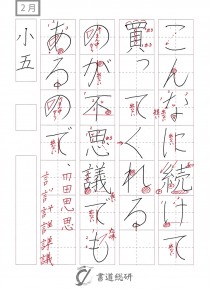 2月
こんなに続けて
買ってくれる
のが不思議でも
あるので
小五
書道総研